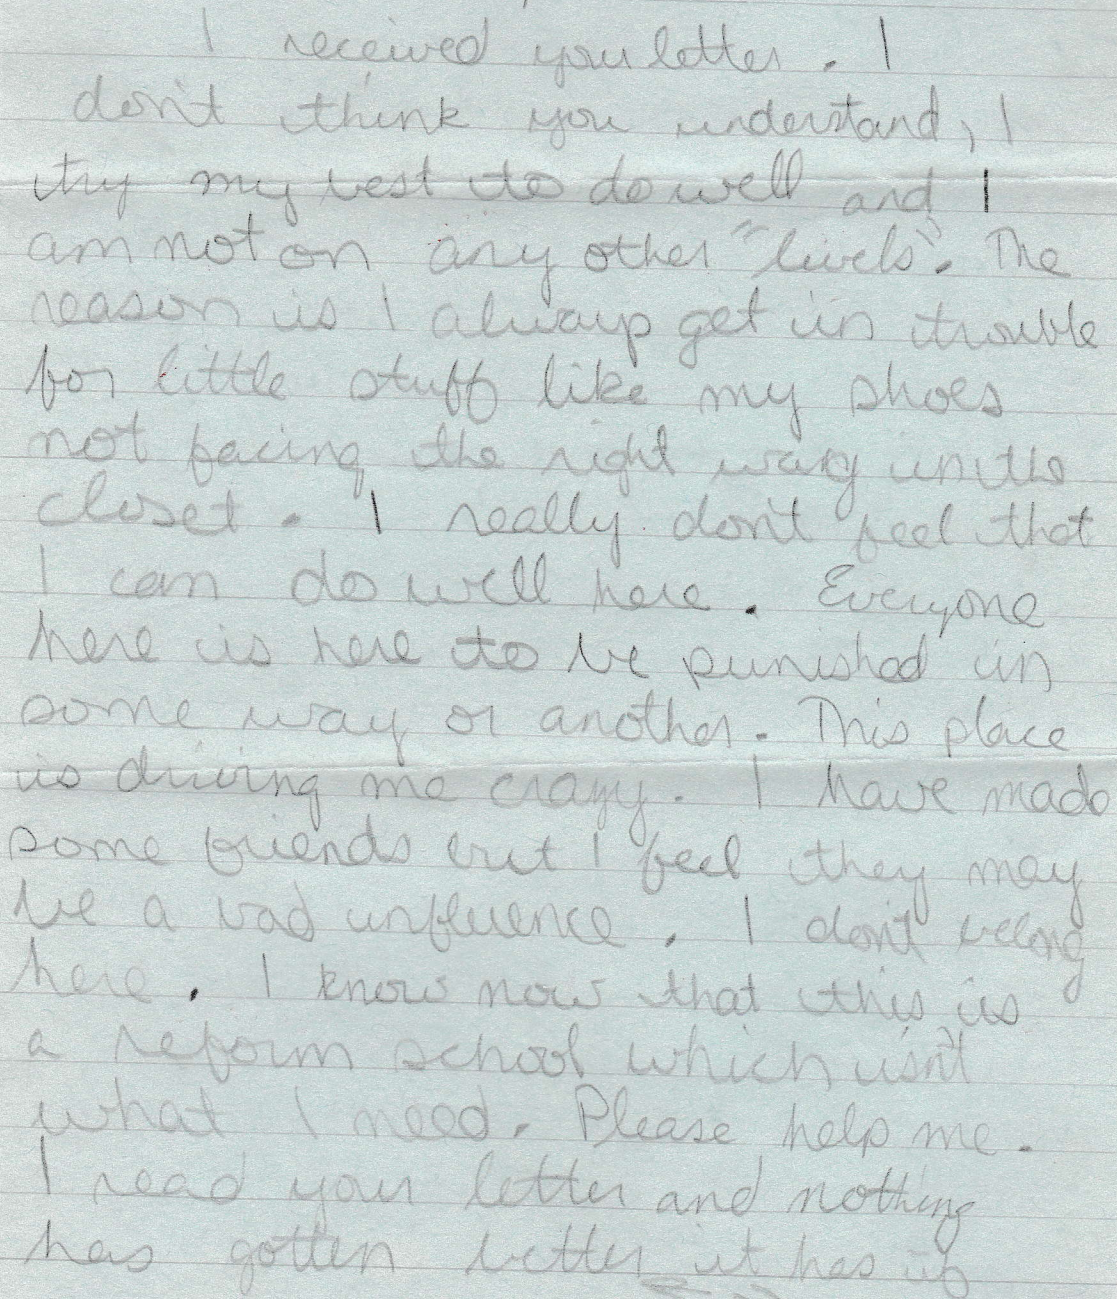 I received your letter. I
don't think you understand, I
try my best to do well and I
am not on any other "livels". The
reason is I always get in trouble
for little stuff like my shoes
not facing the right way in the
closet. I really don't feel that
I can do well here. Everyone
here is here to be punished in
some way or another. This place
is driving me crazy. I have made
some friends but I feel they may
be a bad influence. I don't belong
here. I know now that this is
a reform school which isn't
what I need. Please help me.
I read your letter and nothing
has gotten better it has if